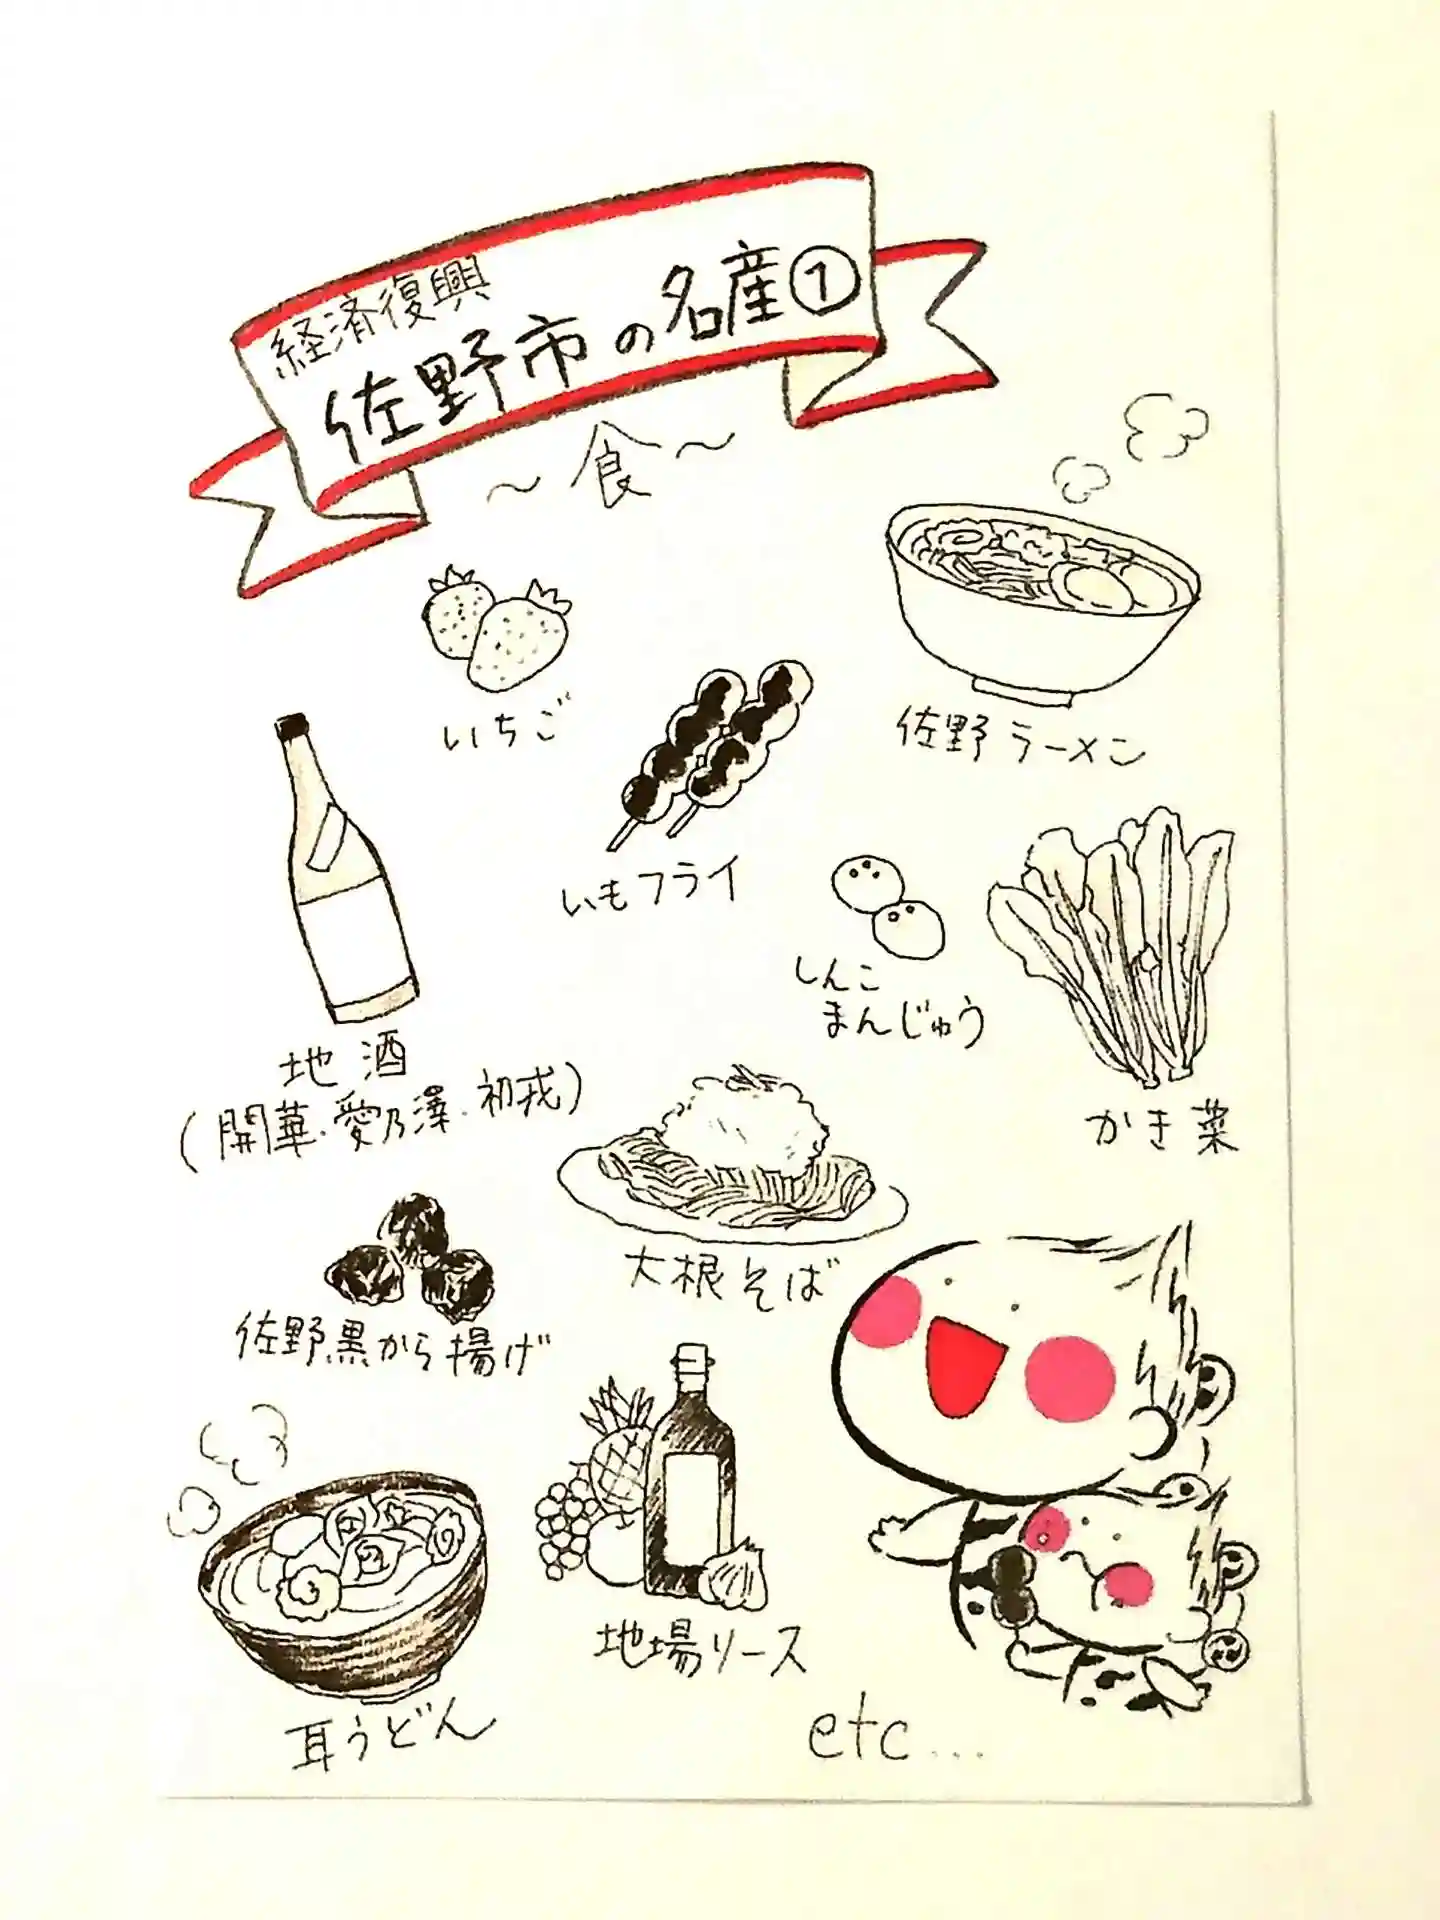 経済復興
佐野市の名産①
～食～
いちご
佐野ラーメン
いもフライ
しんこ
まんじゅう
かき菜
地酒
(開華・愛乃澤・初戎)
大根そば
佐野黒から揚げ
地場ソース
耳うどん
etc...